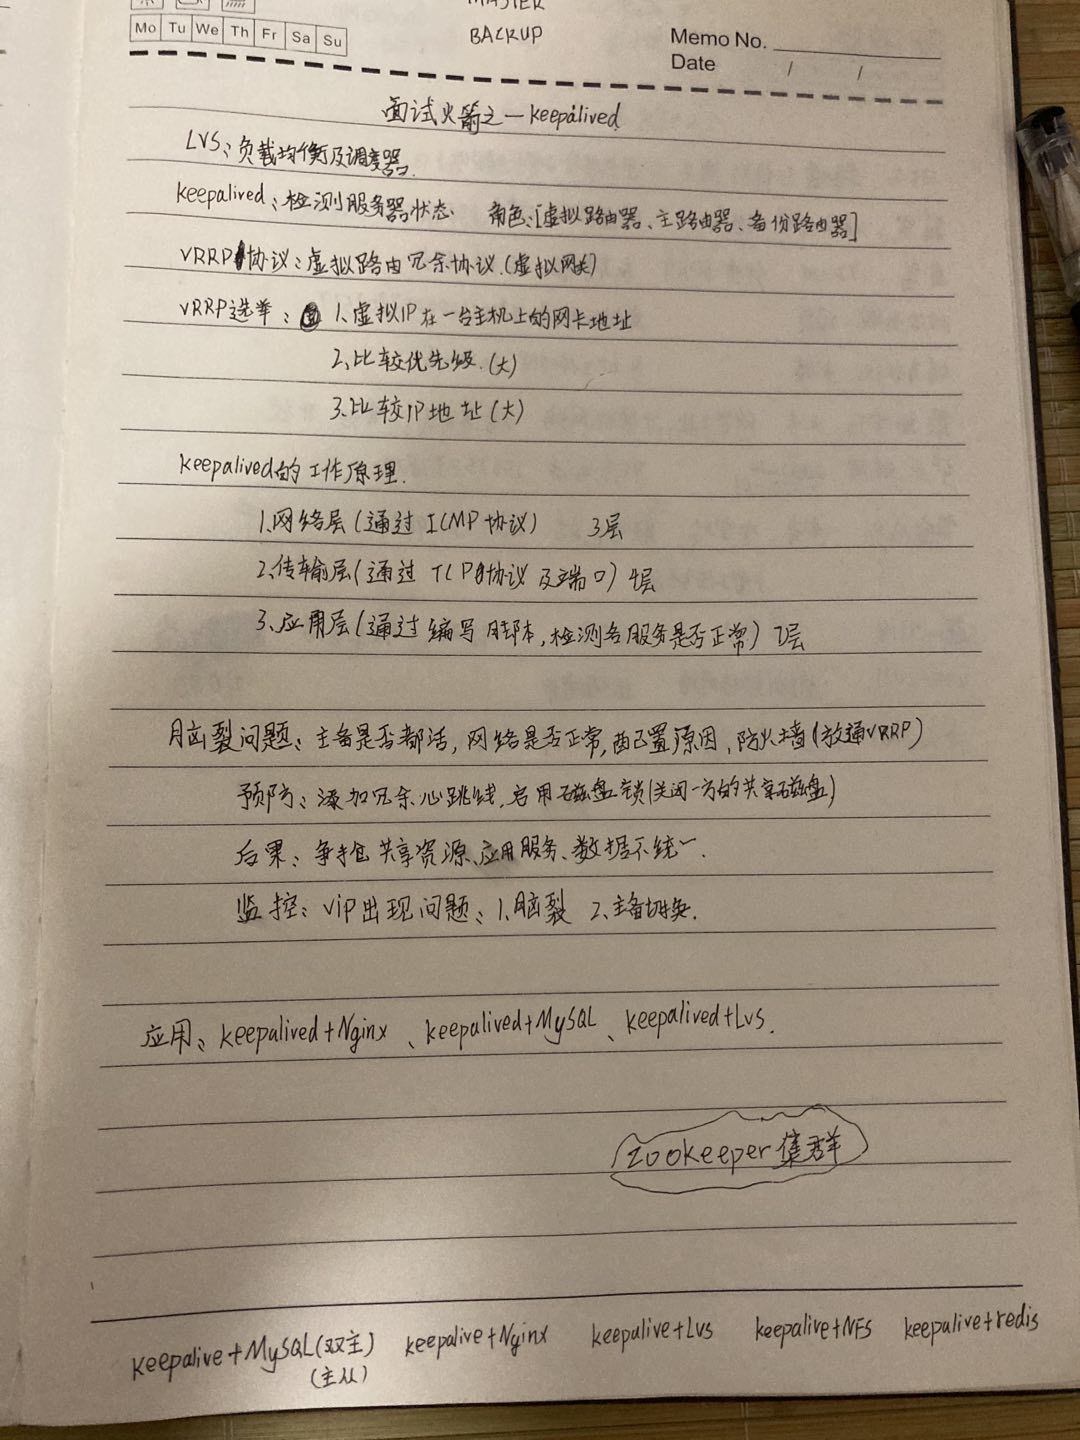 MASTER
BACKUP
Mo Tu We Th Fr Sa Su
Memo No.
Date / /
面试火箭之一keepalived
LVS:负载均衡及调度器.
keepalived:检测服务器状态. 角色:[虚拟路由器、主路由器、备份路由器]
VRRP协议:虚拟路由冗余协议.(虚拟网关)
VRRP选举: 1.虚拟IP在一台主机上的网卡地址
2.比较优先级.(大)
3.比较IP地址(大)
keepalived的工作原理.
1.网络层(通过ICMP协议) 3层
2.传输层(通过TCP协议及端口) 4层
3.应用层(通过编写脚本,检测各服务是否正常) 7层
脑裂问题:主备是否都活,网络是否正常,配置原因,防火墙(放通VRRP)
预防:添加冗余心跳线,启用磁盘锁(关闭一方的共享磁盘)
后果:争抢共享资源、应用服务、数据不统一.
监控:VIP出现问题:1.脑裂 2.主备切换.
应用:keepalived+Nginx、keepalived+MySQL、keepalived+Lvs.
zookeeper集群
keepalive+MySQL(双主) keepalive+Nginx keepalive+Lvs keepalive+NFS keepalive+redis
(主从)